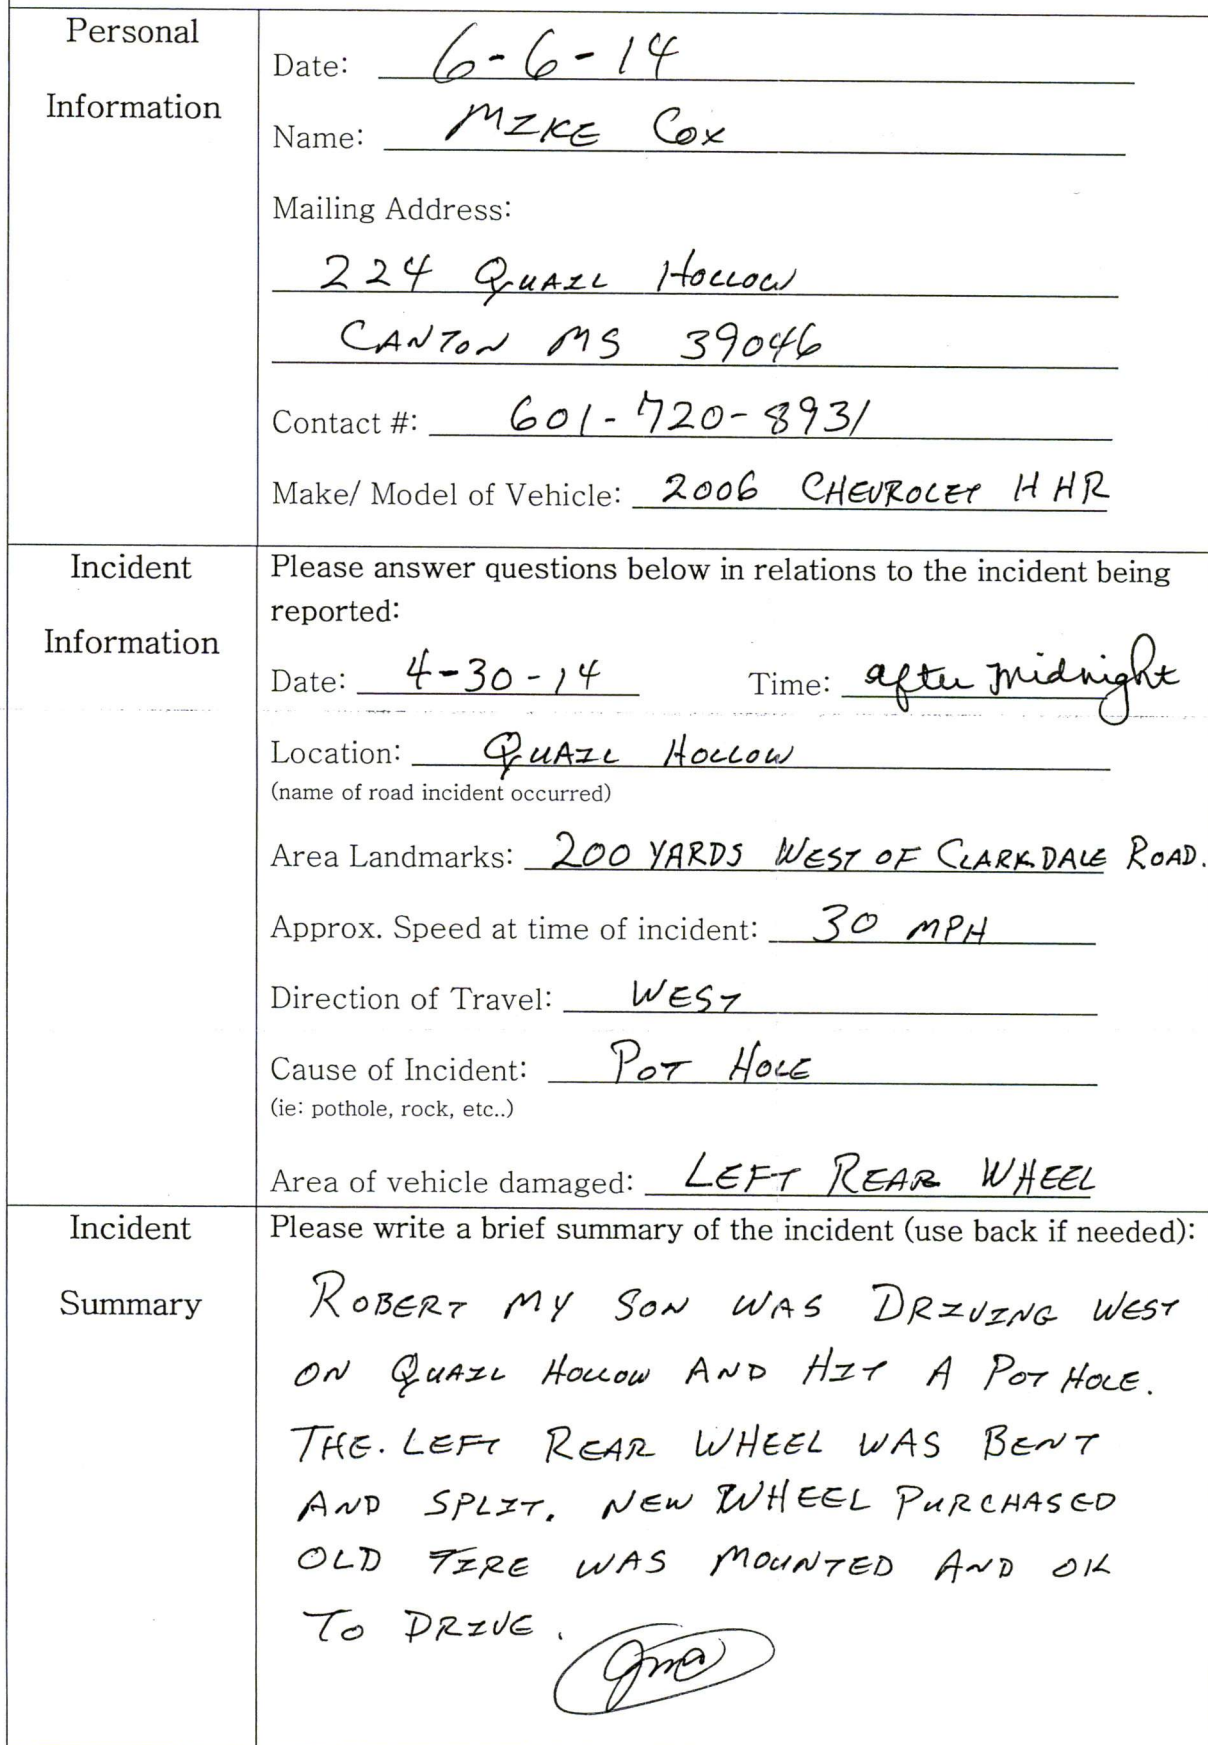 Personal
Information
Date: 6-6-14
Name: MIKE COX
Mailing Address:
224 QUAIL HOLLOW
CANTON MS 39046
Contact #: 601-720-8931
Make/ Model of Vehicle: 2006 CHEVROLET HHR
Incident
Information
Please answer questions below in relations to the incident being
reported:
Date: 4-30-14 Time: after midnight
Location: QUAIL HOLLOW
(name of road incident occurred)
Area Landmarks: 200 YARDS WEST OF CLARKDALE ROAD.
Approx. Speed at time of incident: 30 MPH
Direction of Travel: WEST
Cause of Incident: POT HOLE
(ie: pothole, rock, etc..)
Area of vehicle damaged: LEFT REAR WHEEL
Incident
Summary
Please write a brief summary of the incident (use back if needed):
ROBERT MY SON WAS DRIVING WEST
ON QUAIL HOLLOW AND HIT A POT HOLE.
THE. LEFT REAR WHEEL WAS BENT
AND SPLIT. NEW WHEEL PURCHASED
OLD TIRE WAS MOUNTED AND OK
TO DRIVE.